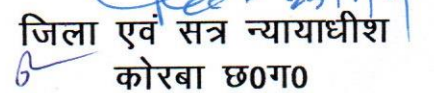 जिला एवं सत्र न्यायाधीश
कोरबा छ0ग0